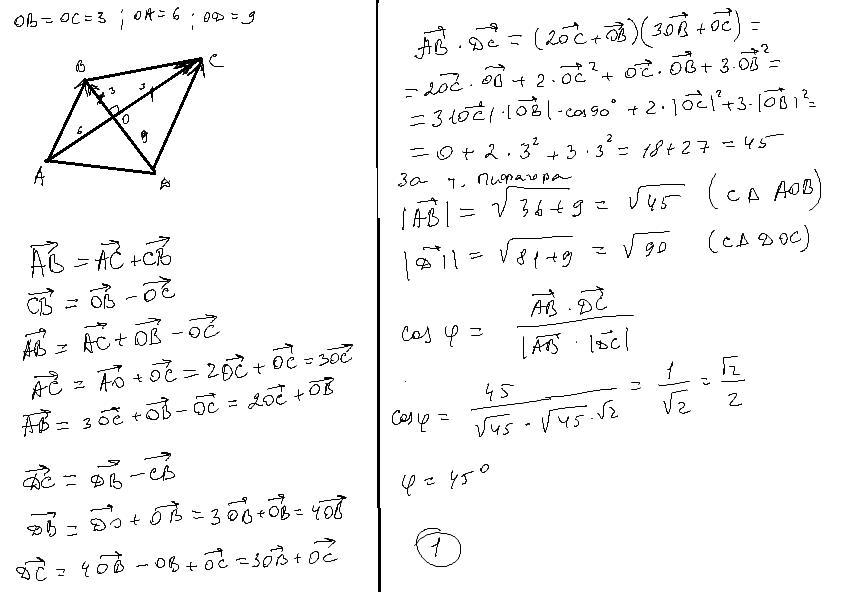 OB = OC = 3 ; OA = 6 ; OD = 9
B
C
3
3
O
6
9
A
D
AB = AC + CB
CB = OB - OC
AB = AC + OB - OC
AC = AO + OC = 2OC + OC = 3OC
AB = 3OC + OB - OC = 2OC + OB
DC = DB - CB
DB = DO + OB = 3OB + OB = 4OB
DC = 4OB - OB + OC = 3OB + OC
AB · DC = (2OC + OB)(3OB + OC) =
= 2OC · OB + 2 · OC² + OC · OB + 3 · OB² =
= 3|OC| · |OB| · cos 90° + 2 · |OC|² + 3 · |OB|² =
= 0 + 2 · 3² + 3 · 3² = 18 + 27 = 45
За т. Пифагора
|AB| = √36+9 = √45 (СΔ AOB)
= √81+9 = √90 (СΔ DOC)
cos φ = AB · DC / |AB · |DC|
cos φ = 45 / √45 · √45 · √2 = 1 / √2 = √2 / 2
φ = 45°
1